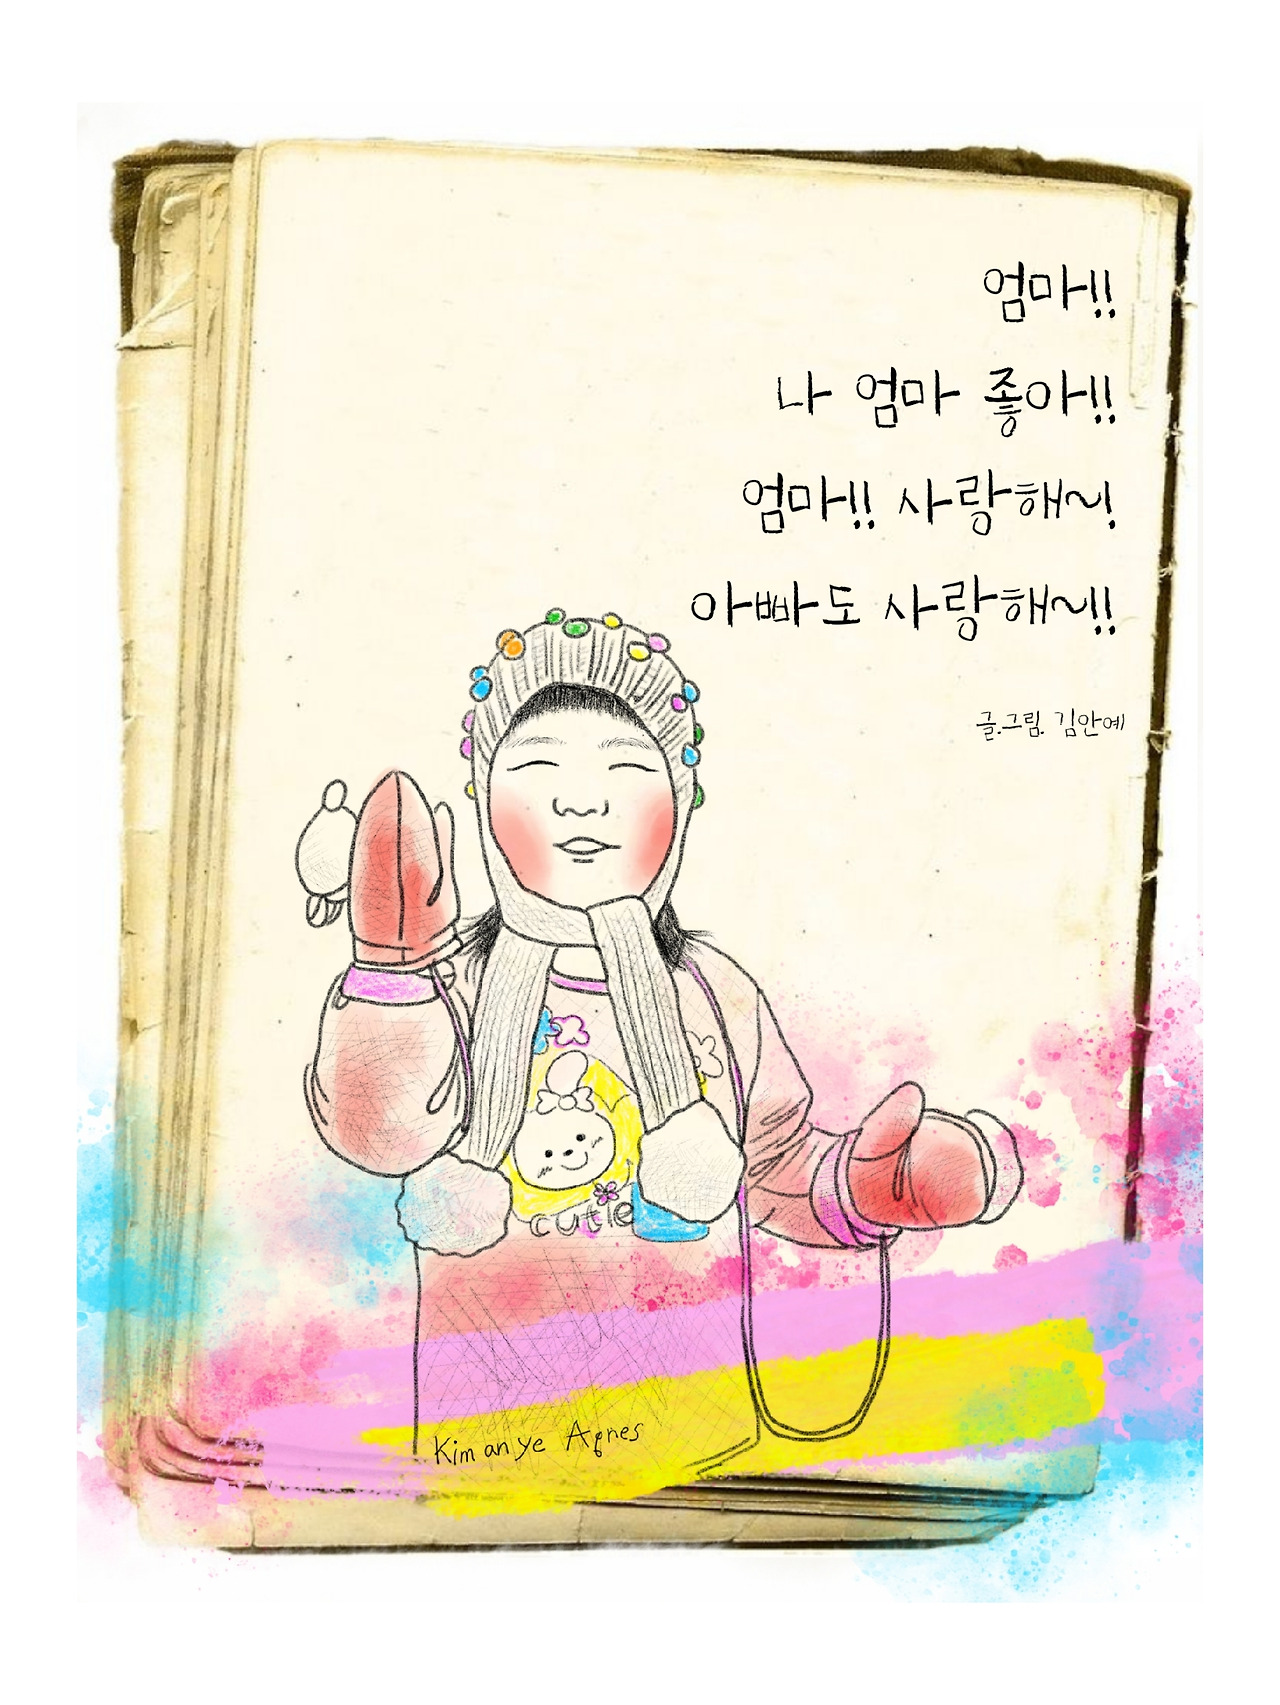 엄마!!
나 엄마 좋아!!
엄마!! 사랑해~!
아빠도 사랑해~!!
글.그림. 김안예
cutie
Kim an ye Agnes